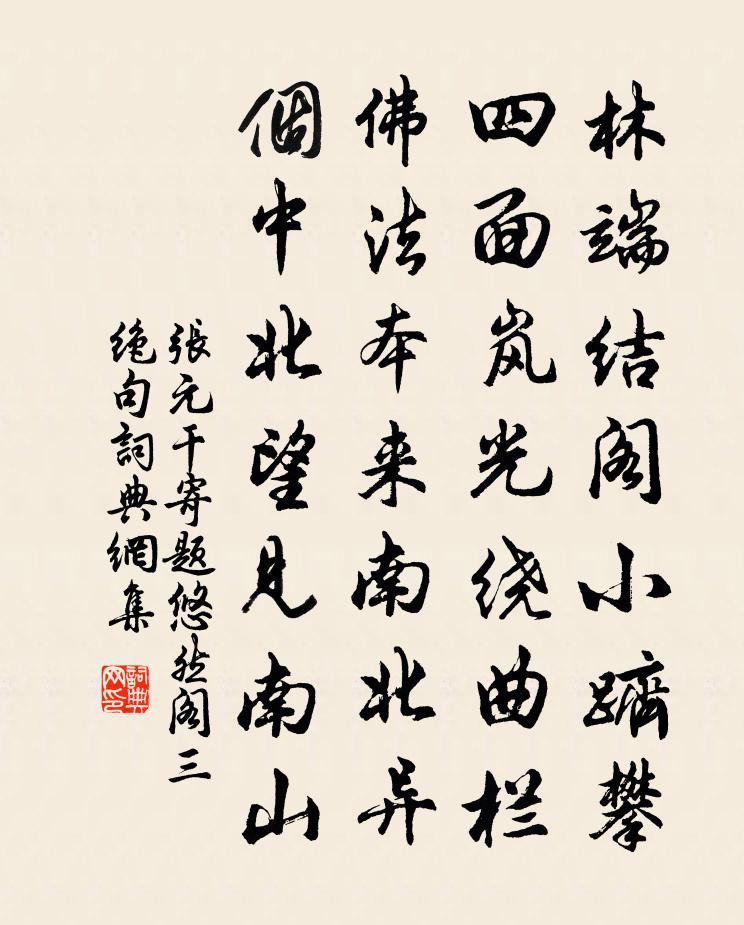 林端结阁小跻攀
四面岚光绕曲栏
佛法本来南北异
個中北望见南山
張元干寄题悠然阁三
绝句詞典網集
詞典网印